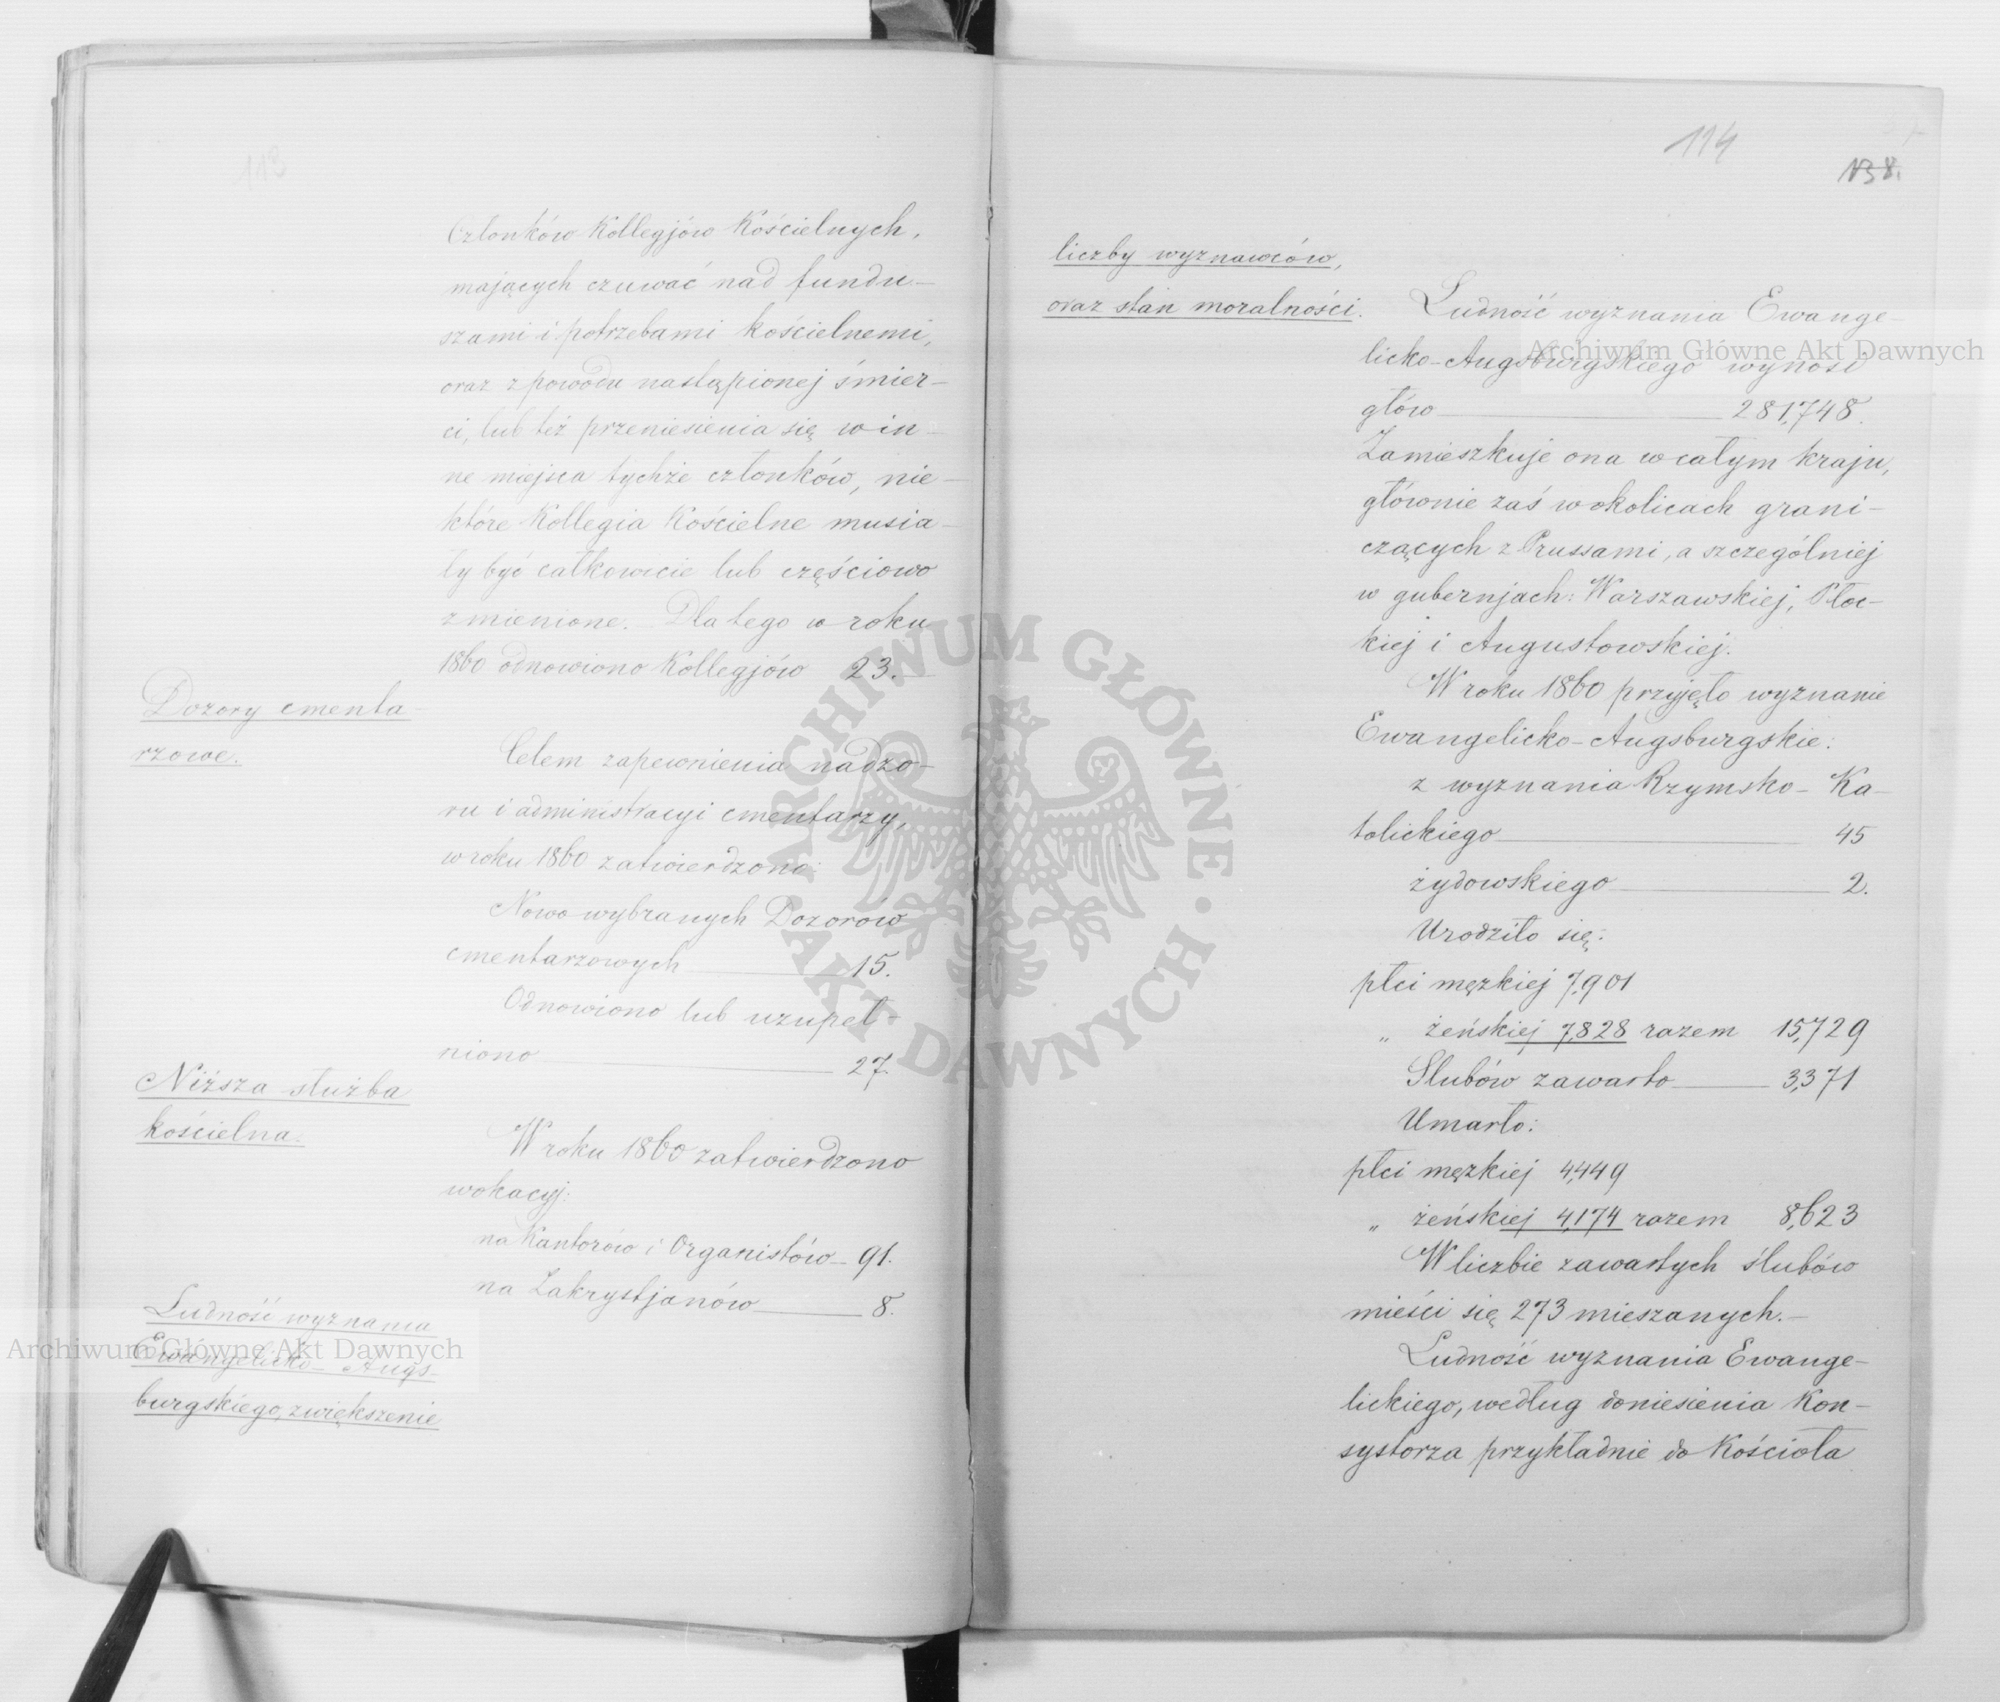 113
Członków Kollegjów Kościelnych,
mających czuwać nad fundu-
szami i potrzebami kościelnemi,
oraz z powodu nastąpionej śmier-
ci, lub też przeniesienia się w in-
ne miejsca tychże członków, nie-
które Kollegia Kościelne musia-
ły być całkowicie lub częściowo
zmienione. Dla tego w roku
1860 odnowiono Kollegjów 23.
Dozory cmenta-
rzowe.
Celem zapewnienia nadzo-
ru i administracyi cmentarzy,
w roku 1860 zatwierdzono:
Nowo wybranych Dozorów
cmentarzowych 15.
Odnowiono lub uzupeł-
niono 27.
Niższa służba
kościelna.
W roku 1860 zatwierdzono
wokacyj:
na Kantorów i Organistów 91.
na Zakrystjanów 8.
Ludność wyznania
Ewangelicko-Augs-
burgskiego, zwiększenie
114
liczby wyznawców,
oraz stan moralności.
Ludność wyznania Ewange-
licko-Augsburgskiego wynosi
głów 281,748.
Zamieszkuje ona w całym kraju,
głównie zaś w okolicach grani-
czących z Prussami, a szczególniej
w gubernjach: Warszawskiej, Płoc-
kiej i Augustowskiej.
W roku 1860 przyjęło wyznanie
Ewangelicko-Augsburgskie:
z wyznania Rzymsko-Ka-
tolickiego 45
żydowskiego 2.
Urodziło się:
płci męzkiej 7,901
„ żeńskiej 7,828 razem 15,729
Slubów zawarto 3,371
Umarło:
płci męzkiej 4,449
„ żeńskiej 4,174 razem 8,623
W liczbie zawartych ślubów
mieści się 273 mieszanych.-
Ludność wyznania Ewange-
lickiego, według doniesienia Kon-
systorza przykładnie do Kościoła
Archiwum Główne Akt Dawnych
Archiwum Główne Akt Dawnych
ARCHIWUM GŁÓWNE · AKT DAWNYCH ·